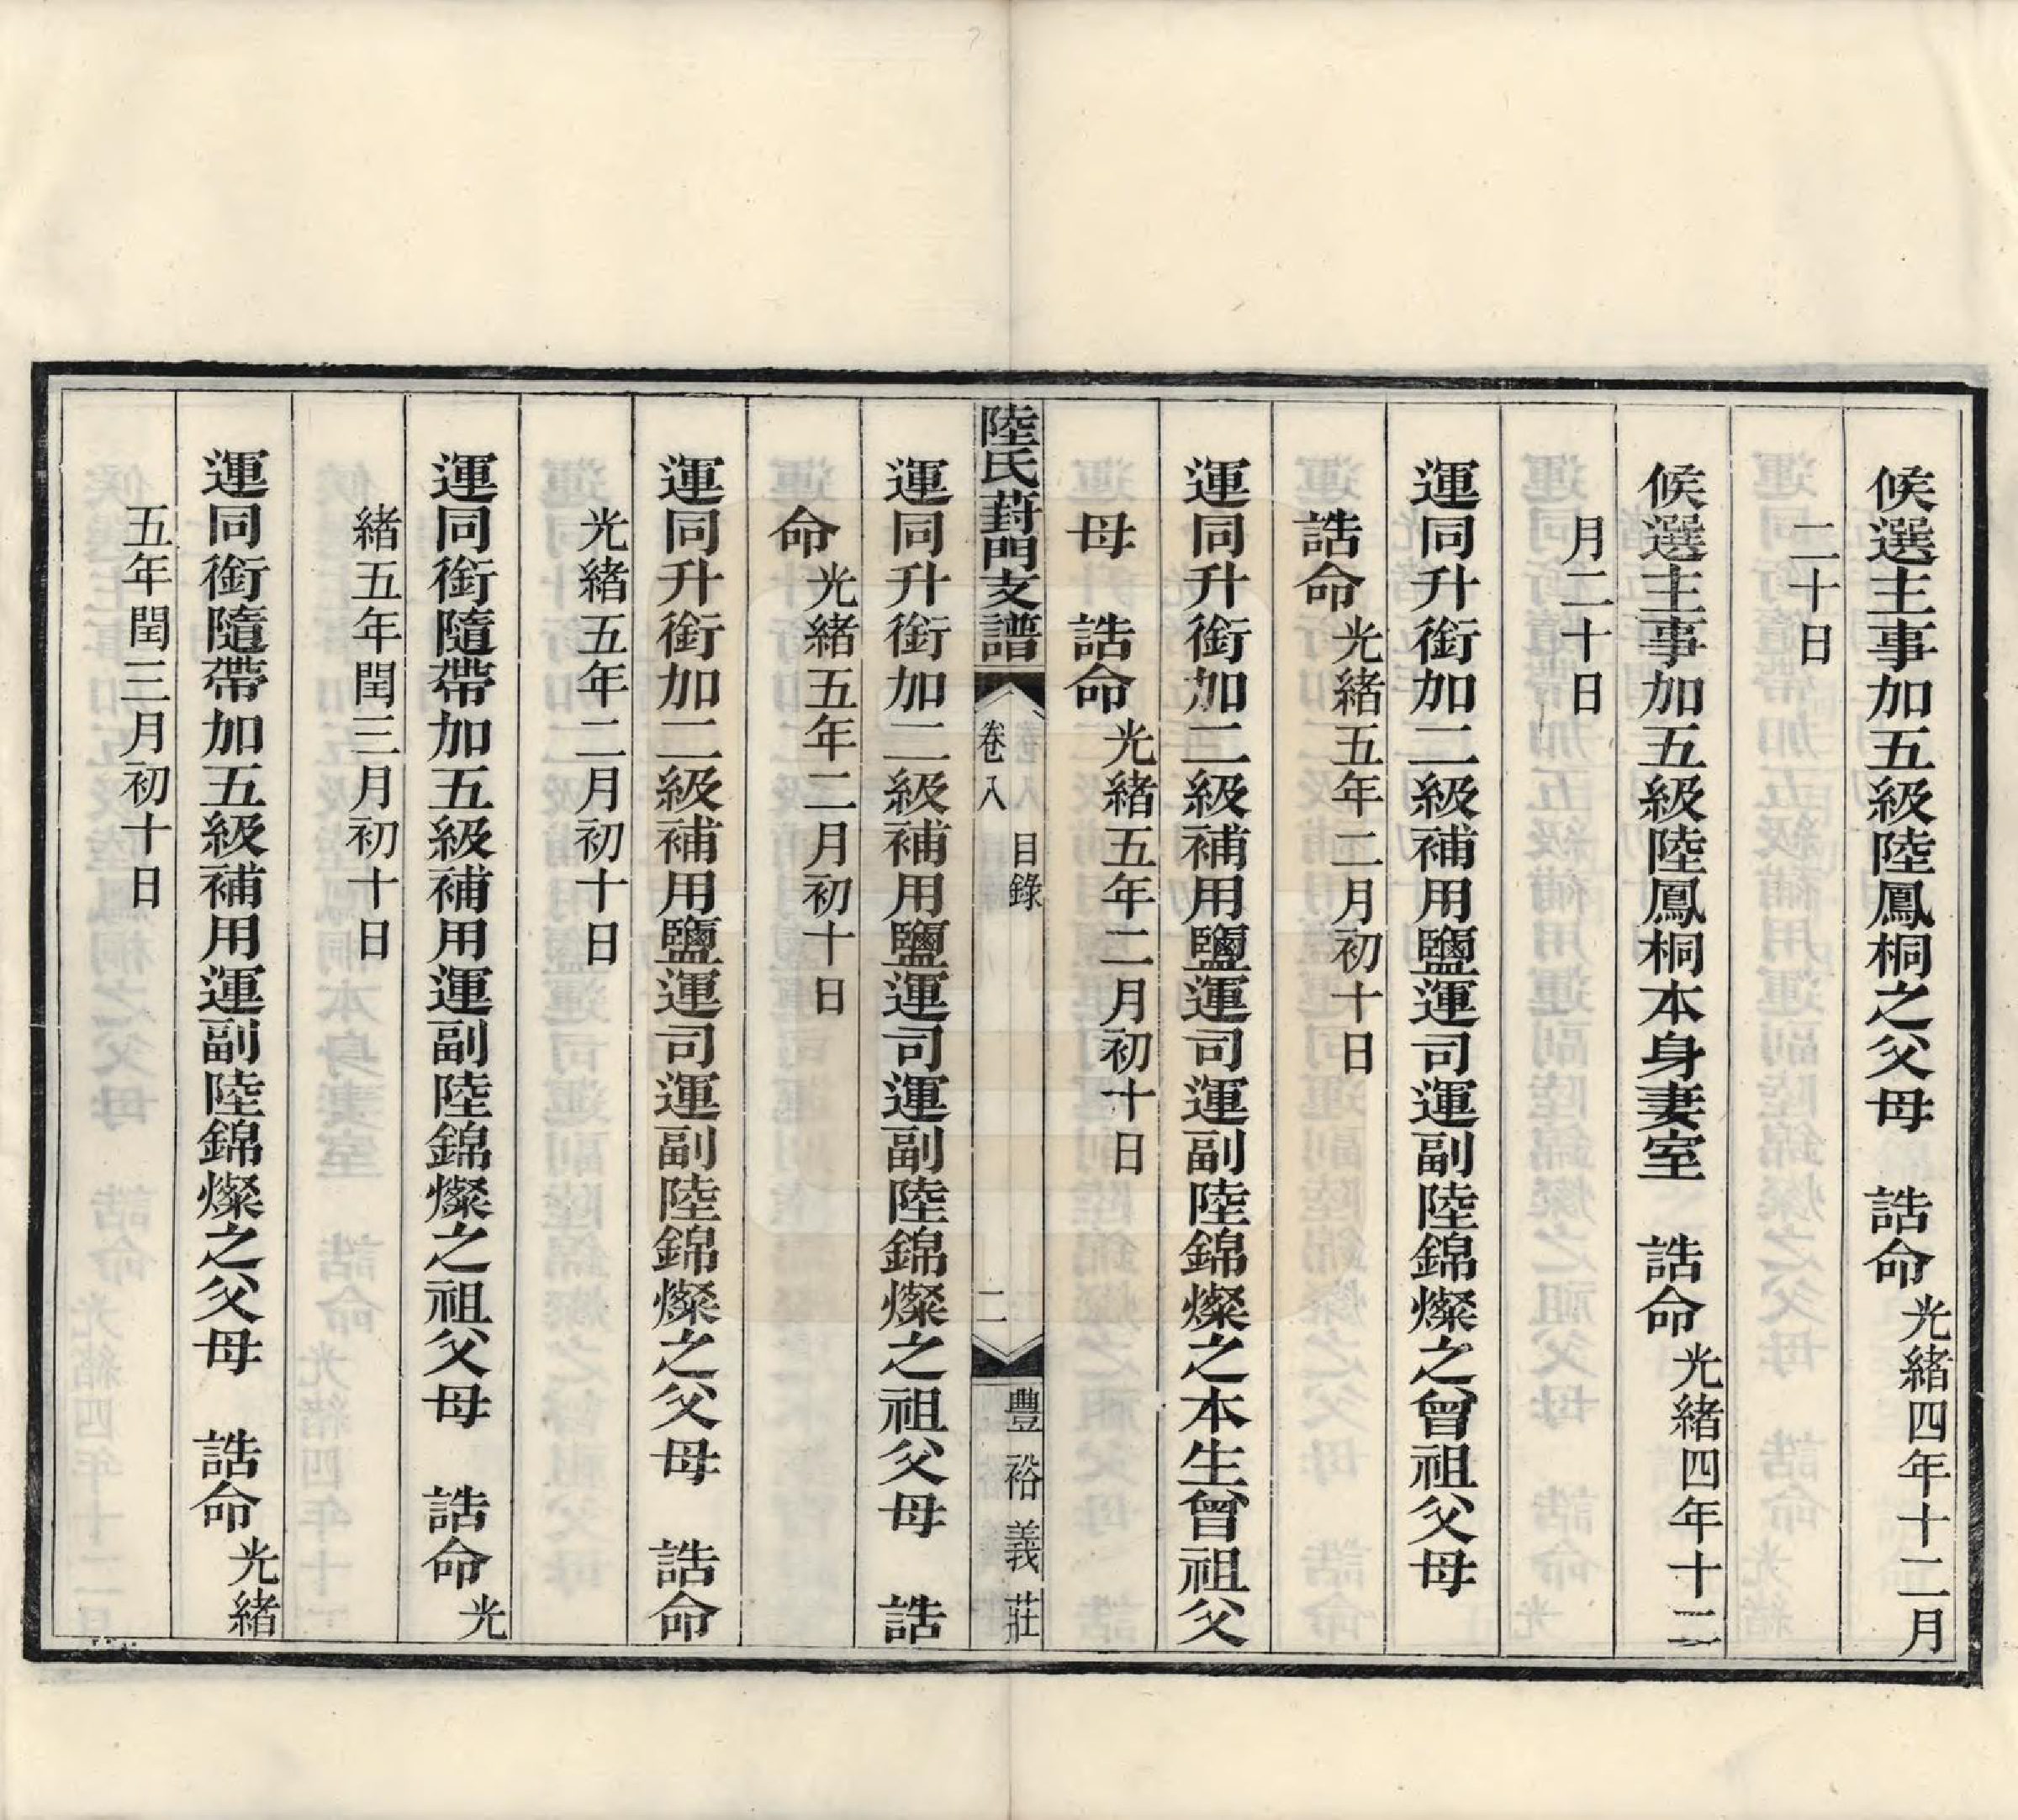 候選主事加五級陸鳳桐之父母　誥命光緒四年十二月
二十日
候選主事加五級陸鳳桐本身妻室　誥命光緒四年十二
月二十日
運同升銜加二級補用鹽運司運副陸錦燦之曾祖父母
誥命光緒五年二月初十日
運同升銜加二級補用鹽運司運副陸錦燦之本生曾祖父
母　誥命光緒五年二月初十日
陸氏葑門支譜
卷八
目錄
二
豐裕義莊
運同升銜加二級補用鹽運司運副陸錦燦之祖父母　誥
命光緒五年二月初十日
運同升銜加二級補用鹽運司運副陸錦燦之父母　誥命
光緒五年二月初十日
運同銜隨帶加五級補用運副陸錦燦之祖父母　誥命光
緒五年閏三月初十日
運同銜隨帶加五級補用運副陸錦燦之父母　誥命光緒
五年閏三月初十日